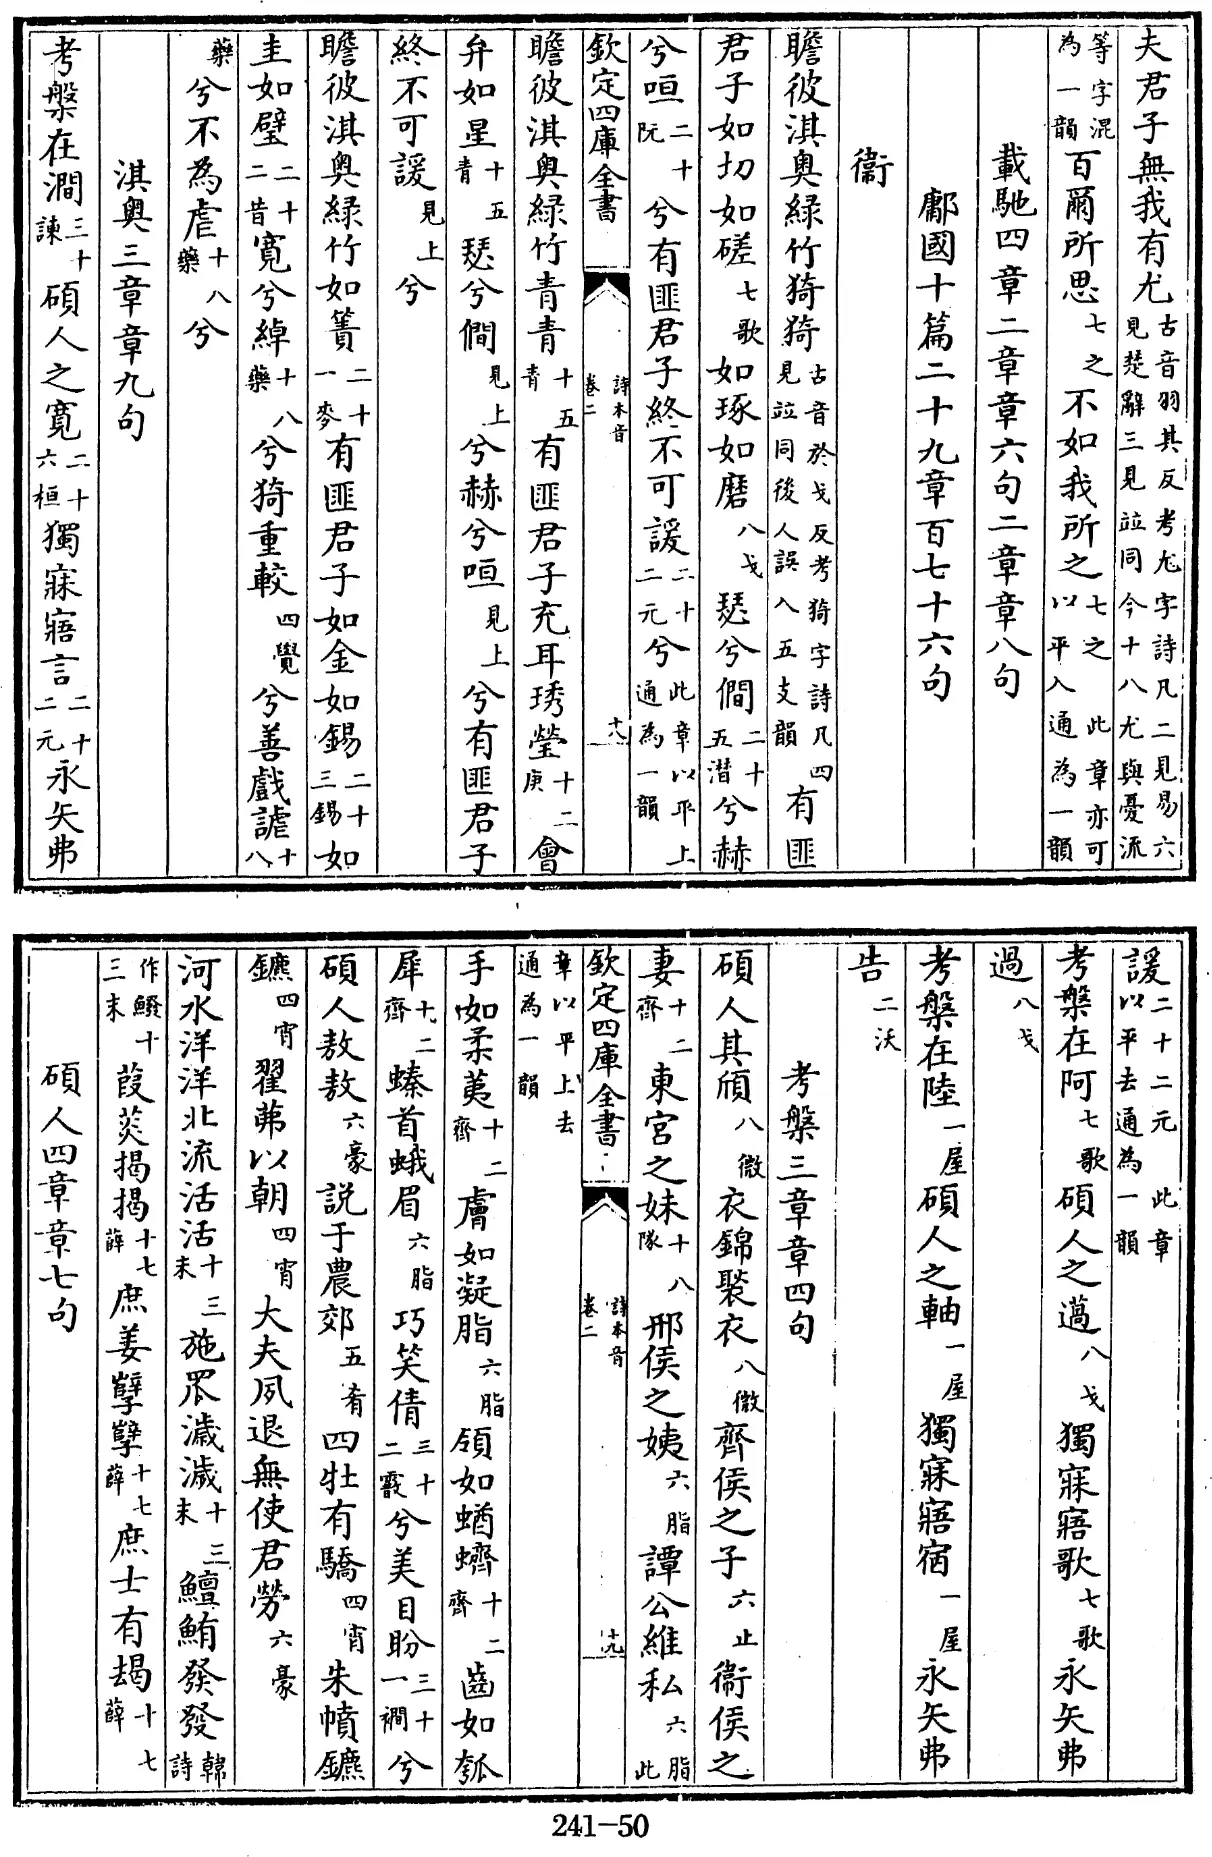 夫君子無我有尤古音羽其反考尤字詩凡二見易六見楚辭三見竝同今十八尤與憂流
等字混為一韻百爾所思七之不如我所之七之此章亦可以平入通為一韻
載馳四章二章章六句二章章八句
鄘國十篇二十九章百七十六句
衞
瞻彼淇奧綠竹猗猗古音於戈反考猗字詩凡四見竝同後人誤入五支韻有匪
君子如切如磋七歌如琢如磨八戈瑟兮僩二十五潸兮赫
兮咺二十阮兮有匪君子終不可諼二十二元兮此章以平上通為一韻
欽定四庫全書
詩本音
卷二
十八
瞻彼淇奧綠竹青青十五青有匪君子充耳琇瑩十二庚會
弁如星十五青瑟兮僩見上兮赫兮咺見上兮有匪君子
終不可諼見上兮
瞻彼淇奧綠竹如簀二十一麥有匪君子如金如錫二十三錫如
圭如璧二十二昔寬兮綽十八藥兮猗重較四覺兮善戲謔十八
藥兮不為虐十八藥兮
淇奧三章章九句
考槃在澗三十諫碩人之寬二十六桓獨寐寤言二十二元永矢弗
諼二十二元此章以平去通為一韻
考槃在阿七歌碩人之薖八戈獨寐寤歌七歌永矢弗
過八戈
考槃在陸一屋碩人之軸一屋獨寐寤宿一屋永矢弗
告二沃
考槃三章章四句
碩人其頎八微衣錦褧衣八微齊侯之子六止衞侯之
妻十二齊東宮之妹十八隊邢侯之姨六脂譚公維私六脂此
欽定四庫全書
詩本音
卷二
十九
章以平上去通為一韻
手如柔荑十二齊膚如凝脂六脂領如蝤蠐十二齊齒如瓠
犀十二齊螓首蛾眉六脂巧笑倩三十二霰兮美目盼三十一襉兮
碩人敖敖六豪說于農郊五肴四牡有驕四宵朱幩鑣
鑣四宵翟茀以朝四宵大夫夙退無使君勞六豪
河水洋洋北流活活十三末施罛濊濊十三末鱣鮪發發韓詩
作鱍十三末葭菼揭揭十七薛庶姜孽孽十七薛庶士有朅十七薛
碩人四章章七句
241-50